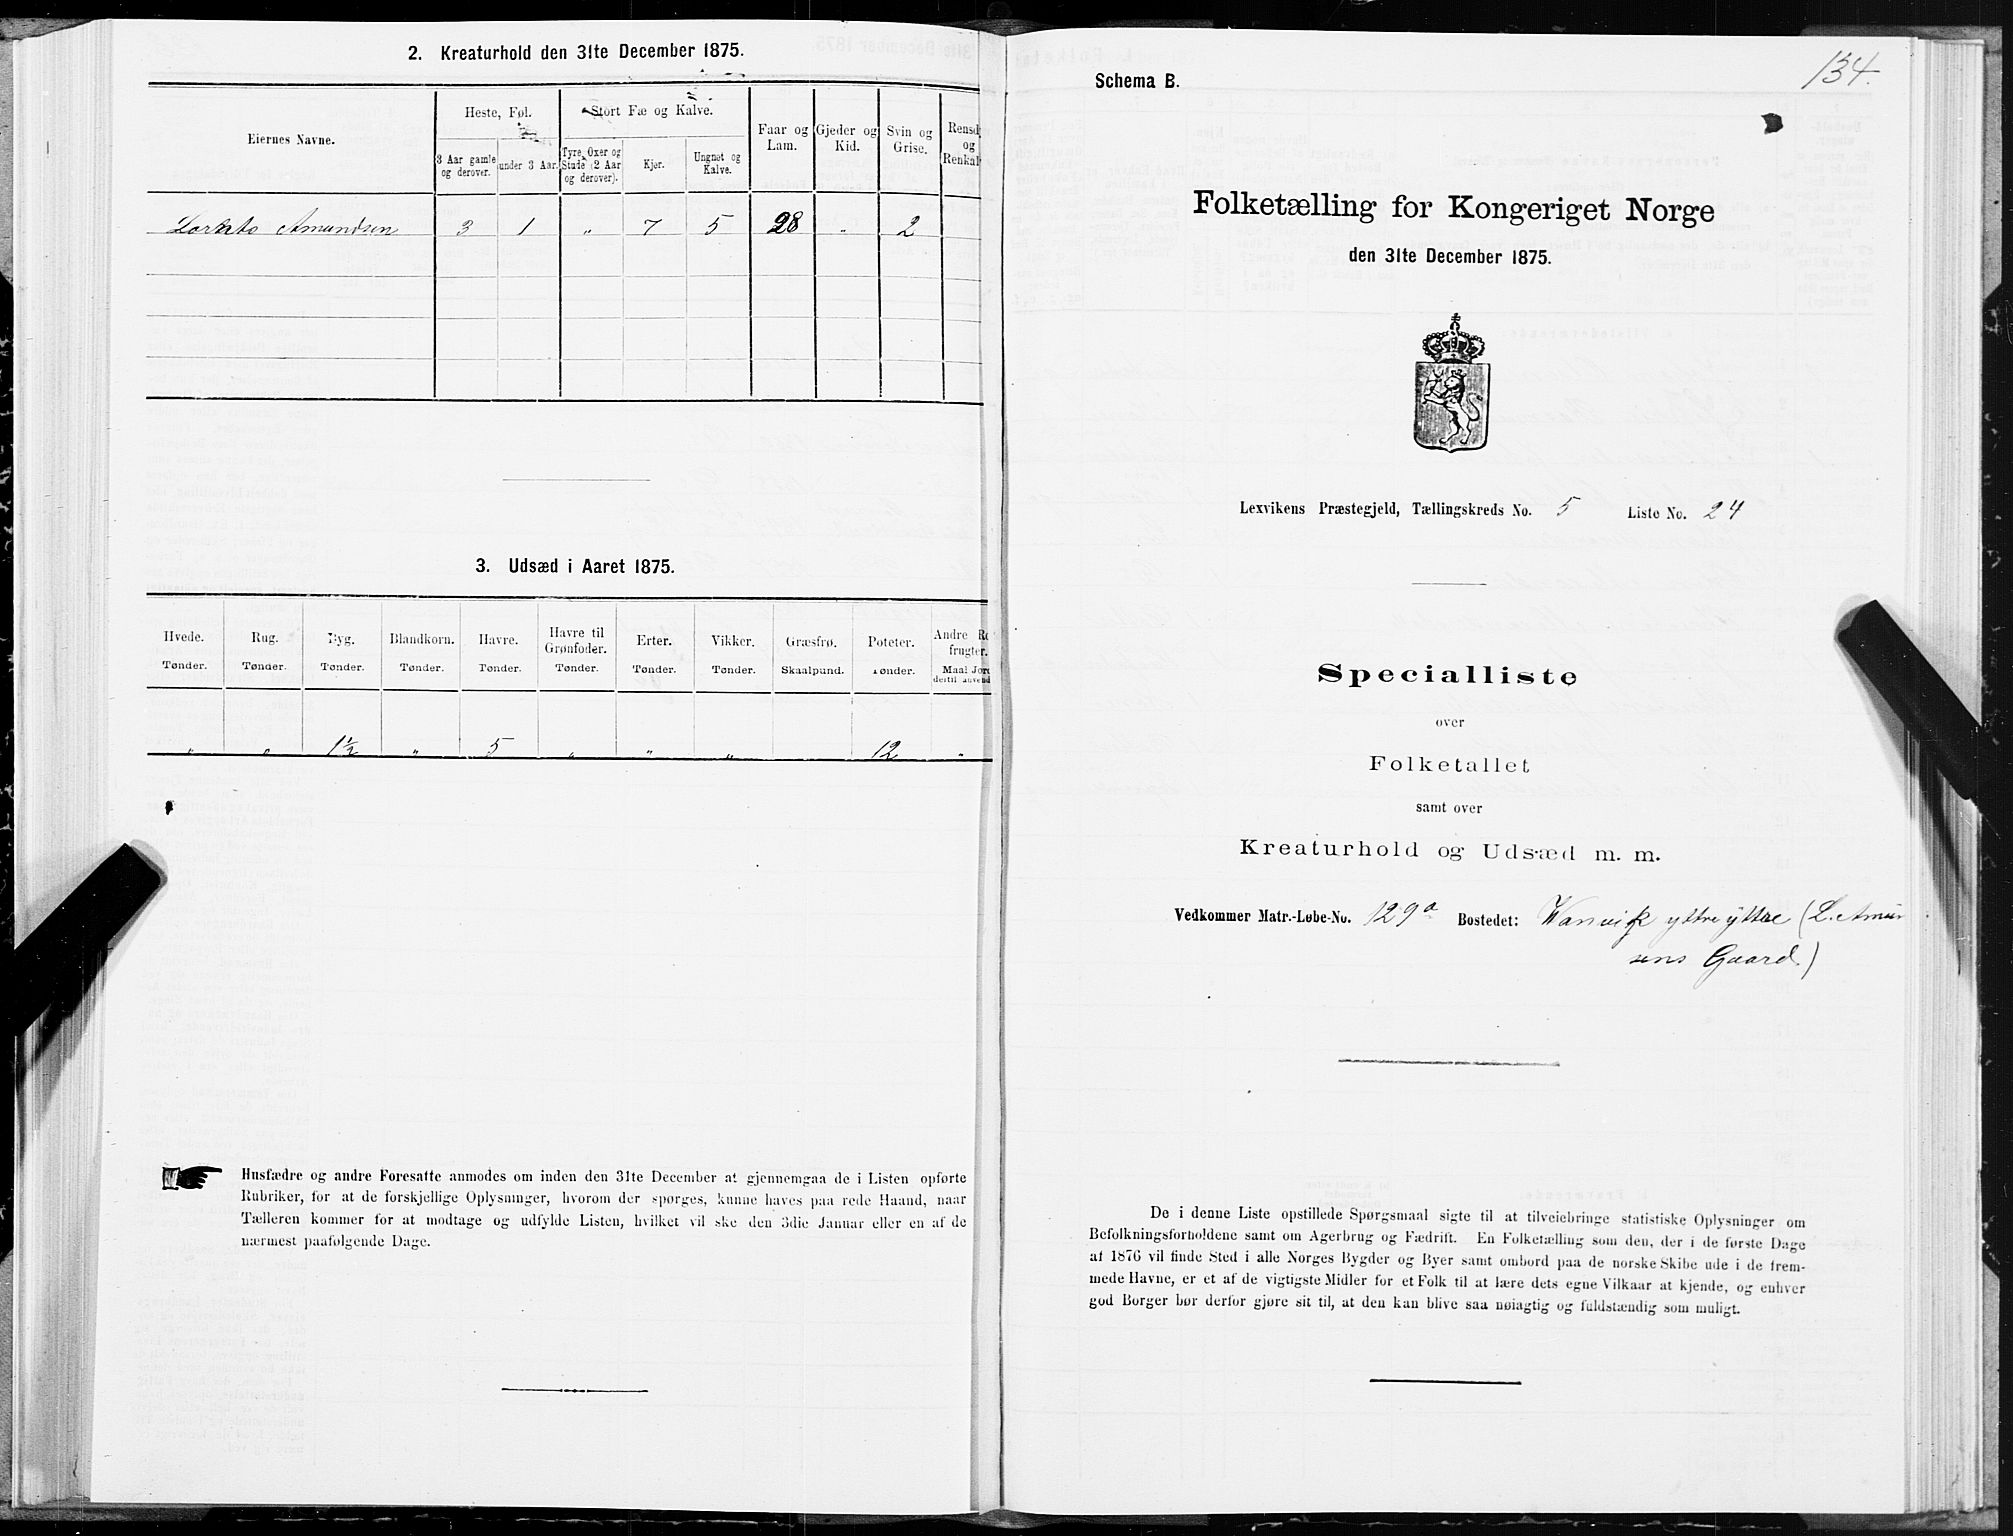 2. Kreaturhold den 31te December 1875.
Eiernes Navne.
Heste, Føl.
Stort Fæ og Kalve.
Faar og Lam.
Gjeder og Kid.
Svin og Grise.
Rensd
og
Renkal
3 Aar gamle og derover.
under 3 Aar.
Tyre, Oxer og Stude (2 Aar og derover).
Kjør.
Ungnøt og Kalve.
Amundsen 3 1 " 7 5 28 " 2
3. Udsæd i Aaret 1875.
Hvede. Rug. Byg. Blandkorn. Havre. Havre til Grønfoder. Erter. Vikker. Græsfrø. Poteter. Andre Ro frugter.
Tønder. Tønder. Tønder. Tønder. Tønder. Tønder. Tønder. Tønder. Skaalpund. Tønder. Maal Jord dertil anvend
" " 1½ " 5 " " " 12 "
Husfædre og andre Foresatte anmodes om inden den 31te December at gjennemgaa de i Listen opførte
Rubriker, for at de forskjellige Oplysninger, hvorom der spørges, kunne haves paa rede Haand, naar
Tælleren kommer for at modtage og udfylde Listen, hvilket vil ske den 3die Januar eller en af de
nærmest paafølgende Dage.
134.
Schema B.
Folketælling for Kongeriget Norge
den 31te December 1875.
Lexvikens Præstegjeld, Tællingskreds No. 5 Liste No. 24
Specialliste
over
Folketallet
samt over
Kreaturhold og Udsæd m. m.
Vedkommer Matr.-Løbe-No. 129a Bostedet: Wanvik yttre yttre (L. Amun
sens Gaard.)
De i denne Liste opstillede Spørgsmaal sigte til at tilveiebringe statistiske Oplysninger om
Befolkningsforholdene samt om Agerbrug og Fædrift. En Folketælling som den, der i de første Dage
af 1876 vil finde Sted i alle Norges Bygder og Byer samt ombord paa de norske Skibe ude i de frem-
mede Havne, er et af de vigtigste Midler for et Folk til at lære dets egne Vilkaar at kjende, og enhver
god Borger bør derfor gjøre sit til, at den kan blive saa nøiagtig og fuldstændig som muligt.